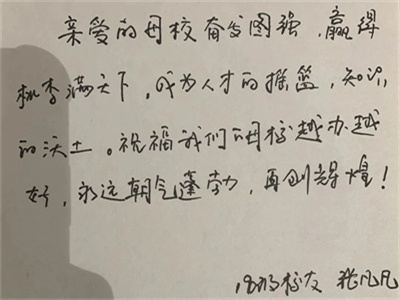 亲爱的母校奋发图强，赢得
桃李满天下，成为人才的摇篮，知识
的沃土。祝福我们的母校越办越
好，永远朝气蓬勃，再创辉煌！
校友 张凡凡